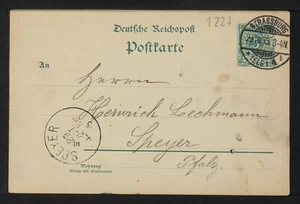 1227
Deutsche Reichspost
Postkarte
STRASSBURG
An
Herrn
Heinrich Lechmann
SPEYER
in
Speyer
Pfalz.
Wohnung
(Straße und Hausnummer)